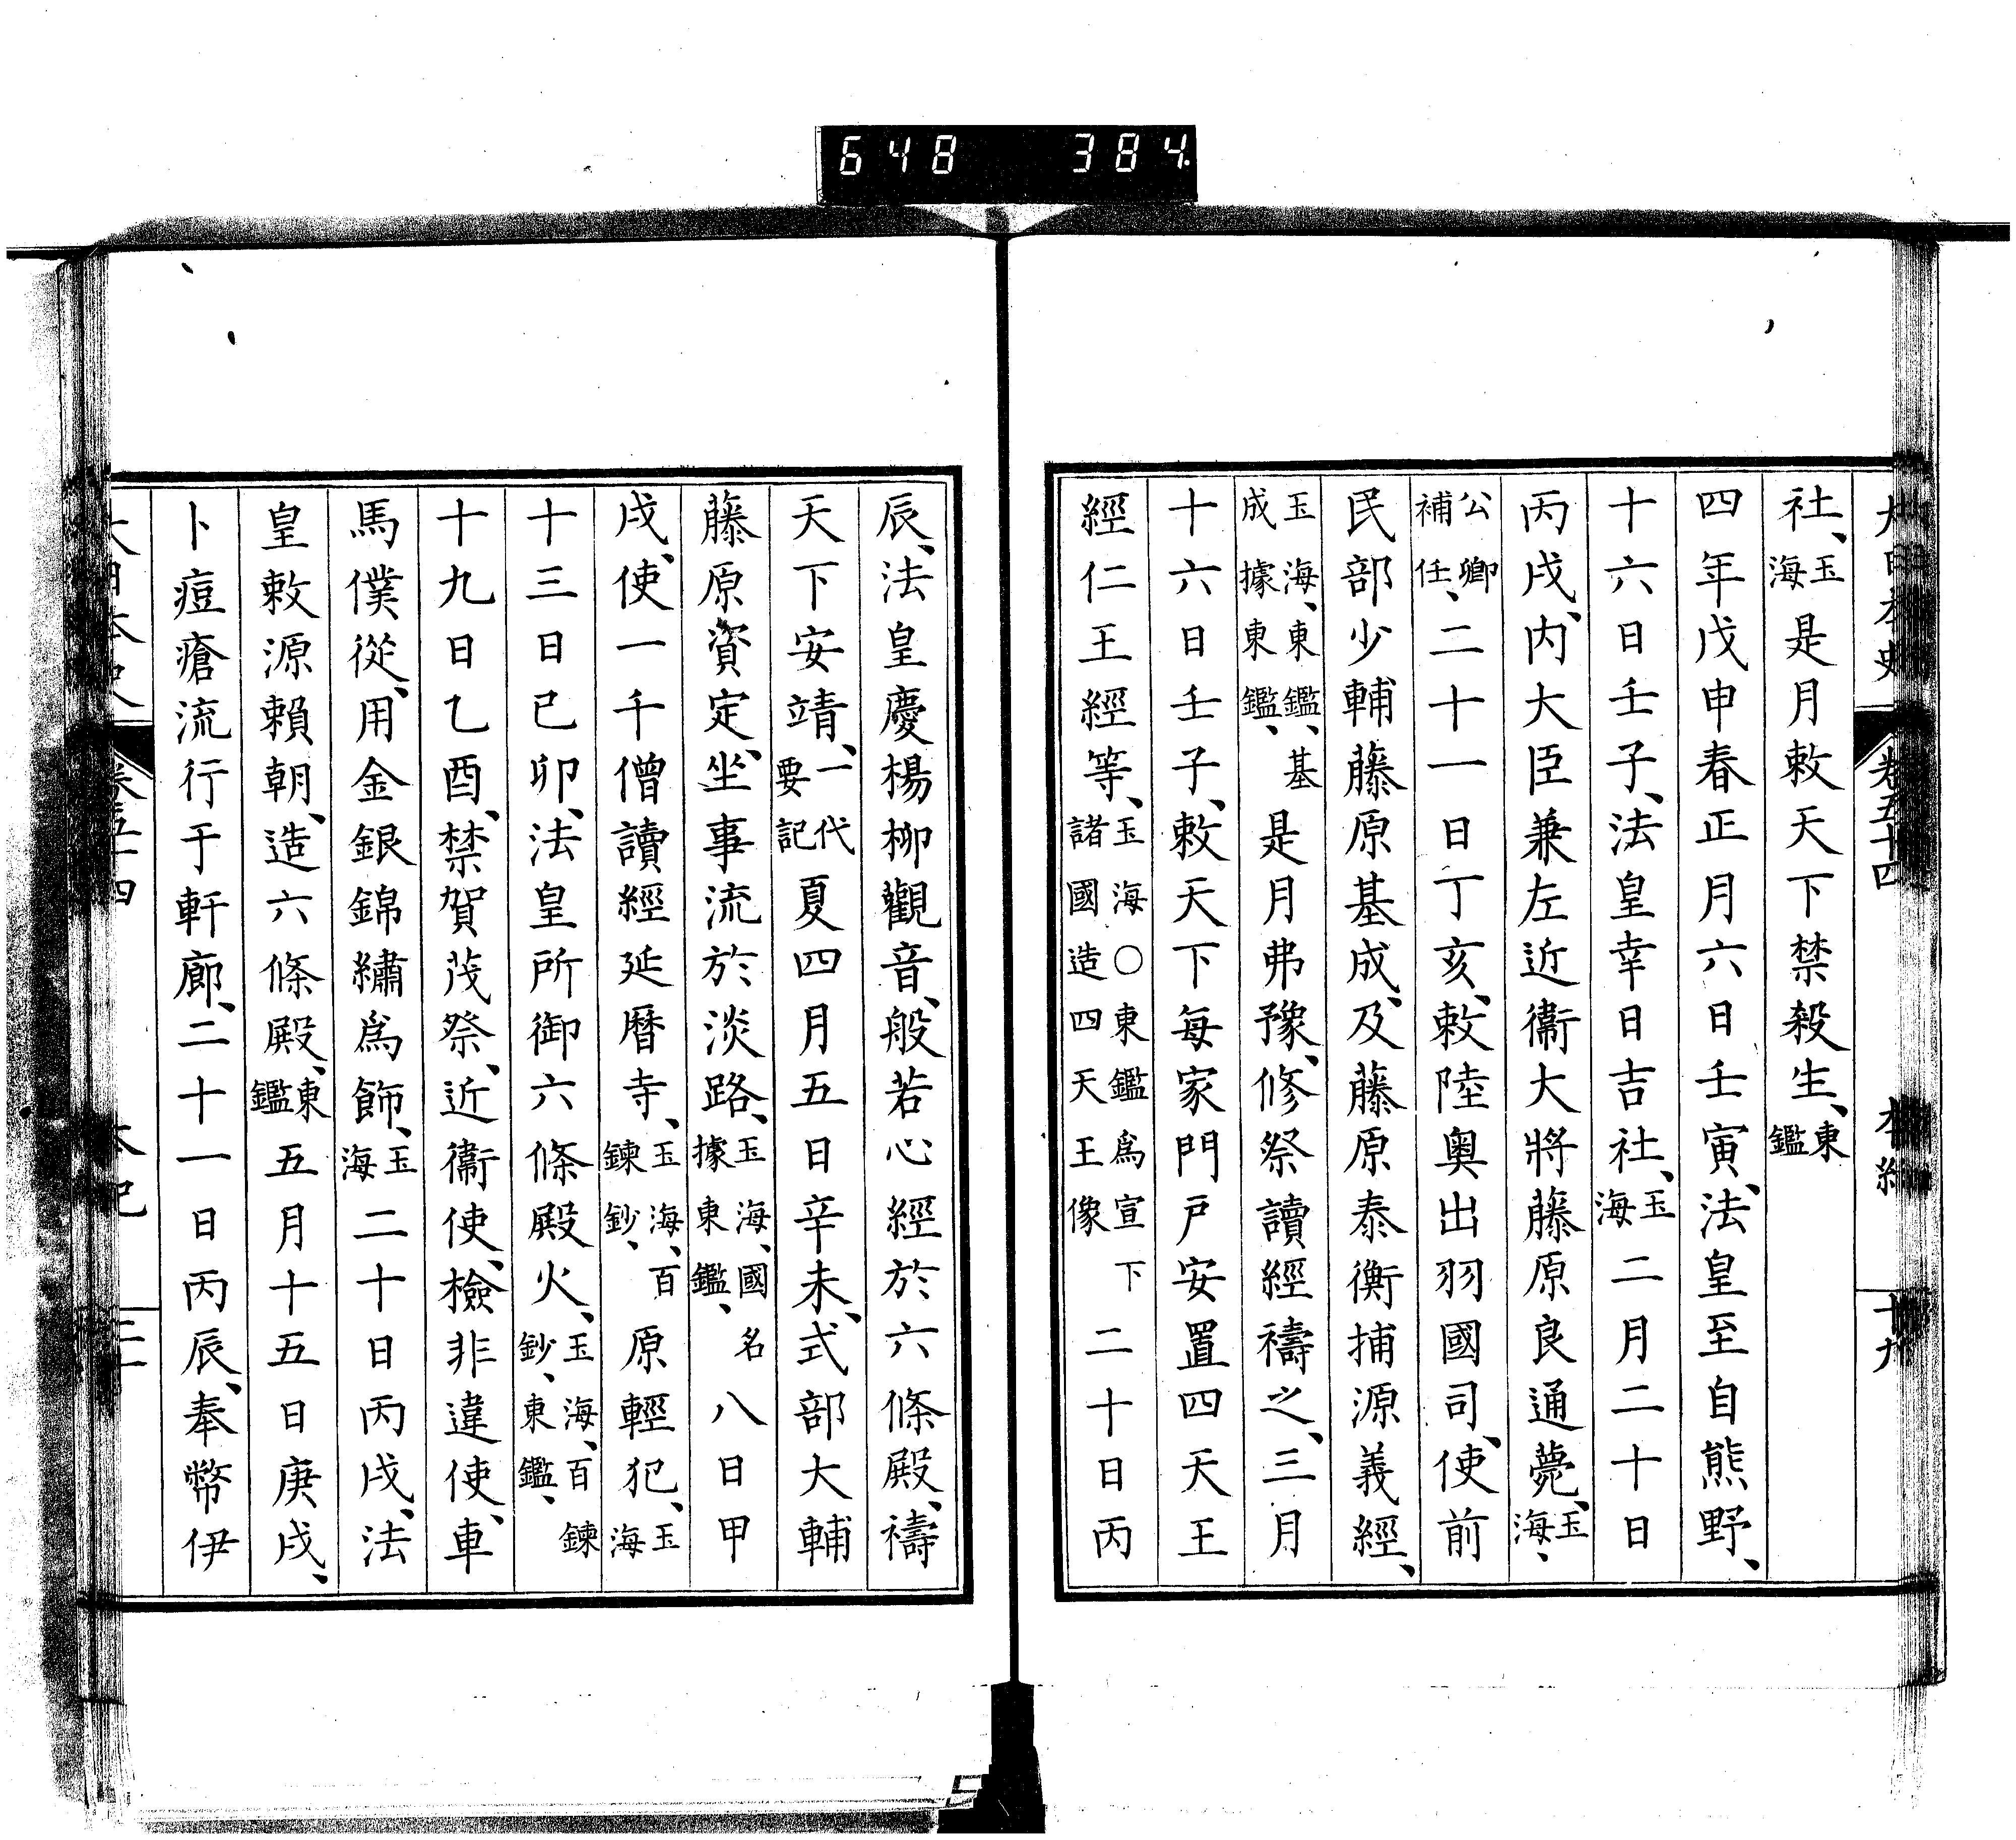 648 384
大日本史 卷五十四 本紀 十九
社、玉海是月敕天下禁殺生、東鑑
四年戊申春正月六日壬寅、法皇至自熊野、
十六日壬子、法皇幸日吉社、玉海二月二十日
丙戌、内大臣兼左近衞大將藤原良通薨、玉海、
公卿補任、二十一日丁亥、敕陸奥出羽國司、使前
民部少輔藤原基成、及藤原泰衡捕源義經、
玉海、東鑑、基成據東鑑、是月弗豫、修祭讀經禱之、三月
十六日壬子、敕天下每家門戸安置四天王
經仁王經等、玉海○東鑑爲宣下諸國造四天王像二十日丙
辰、法皇慶楊柳觀音、般若心經於六條殿、禱
天下安靖、一代要記夏四月五日辛未、式部大輔
藤原資定、坐事流於淡路、玉海、國名據東鑑、八日甲
戌、使一千僧讀經延暦寺、玉海、百鍊鈔、原輕犯、玉海
十三日己卯、法皇所御六條殿火、玉海、百鍊鈔、東鑑、
十九日乙酉、禁賀茂祭、近衞使、檢非違使、車
馬僕從、用金銀錦繡爲飾、玉海二十日丙戌、法
皇敕源賴朝、造六條殿、東鑑五月十五日庚戌、
卜痘瘡流行于軒廊、二十一日丙辰、奉幣伊
大日本史 卷五十四 本紀